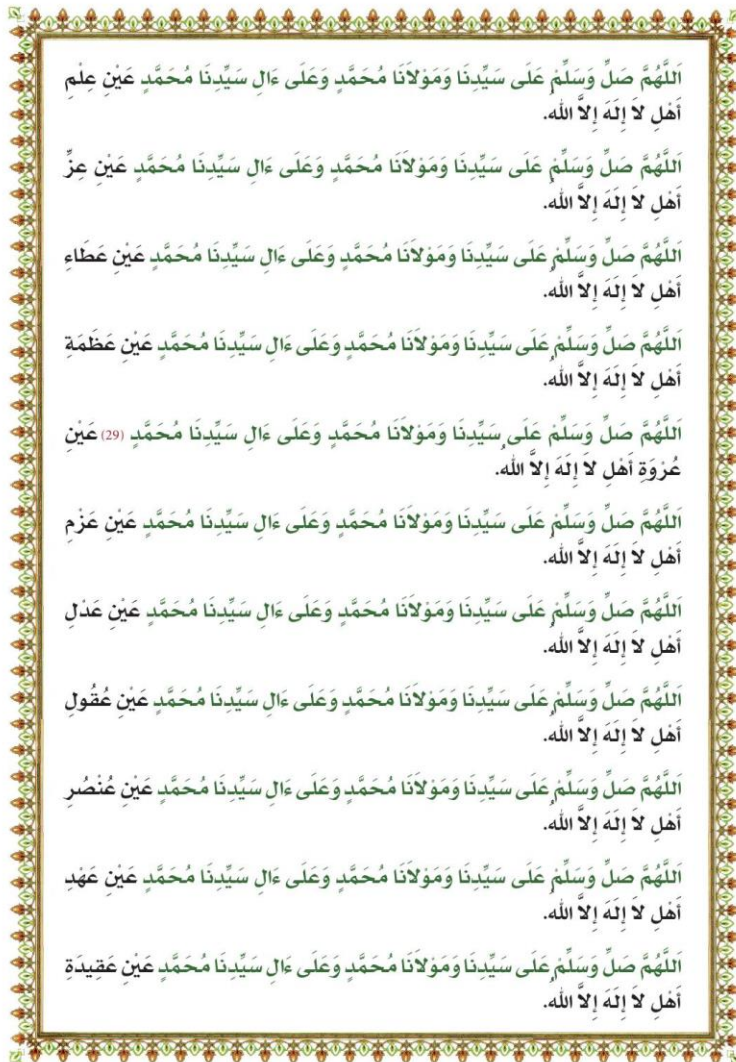 اَللَّهُمَّ صَلِّ وَسَلِّمْ عَلَى سَيِّدِنَا وَمَوْلاَنَا مُحَمَّدٍ وَعَلَى ءَالِ سَيِّدِنَا مُحَمَّدٍ عَيْنِ عِلْمِ
أَهْلِ لاَ إِلَهَ إِلاَّ الله.
اَللَّهُمَّ صَلِّ وَسَلِّمْ عَلَى سَيِّدِنَا وَمَوْلاَنَا مُحَمَّدٍ وَعَلَى ءَالِ سَيِّدِنَا مُحَمَّدٍ عَيْنِ عِزِّ
أَهْلِ لاَ إِلَهَ إِلاَّ الله.
اَللَّهُمَّ صَلِّ وَسَلِّمْ عَلَى سَيِّدِنَا وَمَوْلاَنَا مُحَمَّدٍ وَعَلَى ءَالِ سَيِّدِنَا مُحَمَّدٍ عَيْنِ عَطَاءِ
أَهْلِ لاَ إِلَهَ إِلاَّ الله.
اَللَّهُمَّ صَلِّ وَسَلِّمْ عَلَى سَيِّدِنَا وَمَوْلاَنَا مُحَمَّدٍ وَعَلَى ءَالِ سَيِّدِنَا مُحَمَّدٍ عَيْنِ عَظَمَةِ
أَهْلِ لاَ إِلَهَ إِلاَّ الله.
اَللَّهُمَّ صَلِّ وَسَلِّمْ عَلَى سَيِّدِنَا وَمَوْلاَنَا مُحَمَّدٍ وَعَلَى ءَالِ سَيِّدِنَا مُحَمَّدٍ (29) عَيْنِ
عُرْوَةِ أَهْلِ لاَ إِلَهَ إِلاَّ الله.
اَللَّهُمَّ صَلِّ وَسَلِّمْ عَلَى سَيِّدِنَا وَمَوْلاَنَا مُحَمَّدٍ وَعَلَى ءَالِ سَيِّدِنَا مُحَمَّدٍ عَيْنِ عَزْمِ
أَهْلِ لاَ إِلَهَ إِلاَّ الله.
اَللَّهُمَّ صَلِّ وَسَلِّمْ عَلَى سَيِّدِنَا وَمَوْلاَنَا مُحَمَّدٍ وَعَلَى ءَالِ سَيِّدِنَا مُحَمَّدٍ عَيْنِ عَدْلِ
أَهْلِ لاَ إِلَهَ إِلاَّ الله.
اَللَّهُمَّ صَلِّ وَسَلِّمْ عَلَى سَيِّدِنَا وَمَوْلاَنَا مُحَمَّدٍ وَعَلَى ءَالِ سَيِّدِنَا مُحَمَّدٍ عَيْنِ عُقُولِ
أَهْلِ لاَ إِلَهَ إِلاَّ الله.
اَللَّهُمَّ صَلِّ وَسَلِّمْ عَلَى سَيِّدِنَا وَمَوْلاَنَا مُحَمَّدٍ وَعَلَى ءَالِ سَيِّدِنَا مُحَمَّدٍ عَيْنِ عُنْصُرِ
أَهْلِ لاَ إِلَهَ إِلاَّ الله.
اَللَّهُمَّ صَلِّ وَسَلِّمْ عَلَى سَيِّدِنَا وَمَوْلاَنَا مُحَمَّدٍ وَعَلَى ءَالِ سَيِّدِنَا مُحَمَّدٍ عَيْنِ عَهْدِ
أَهْلِ لاَ إِلَهَ إِلاَّ الله.
اَللَّهُمَّ صَلِّ وَسَلِّمْ عَلَى سَيِّدِنَا وَمَوْلاَنَا مُحَمَّدٍ وَعَلَى ءَالِ سَيِّدِنَا مُحَمَّدٍ عَيْنِ عَقِيدَةِ
أَهْلِ لاَ إِلَهَ إِلاَّ الله.